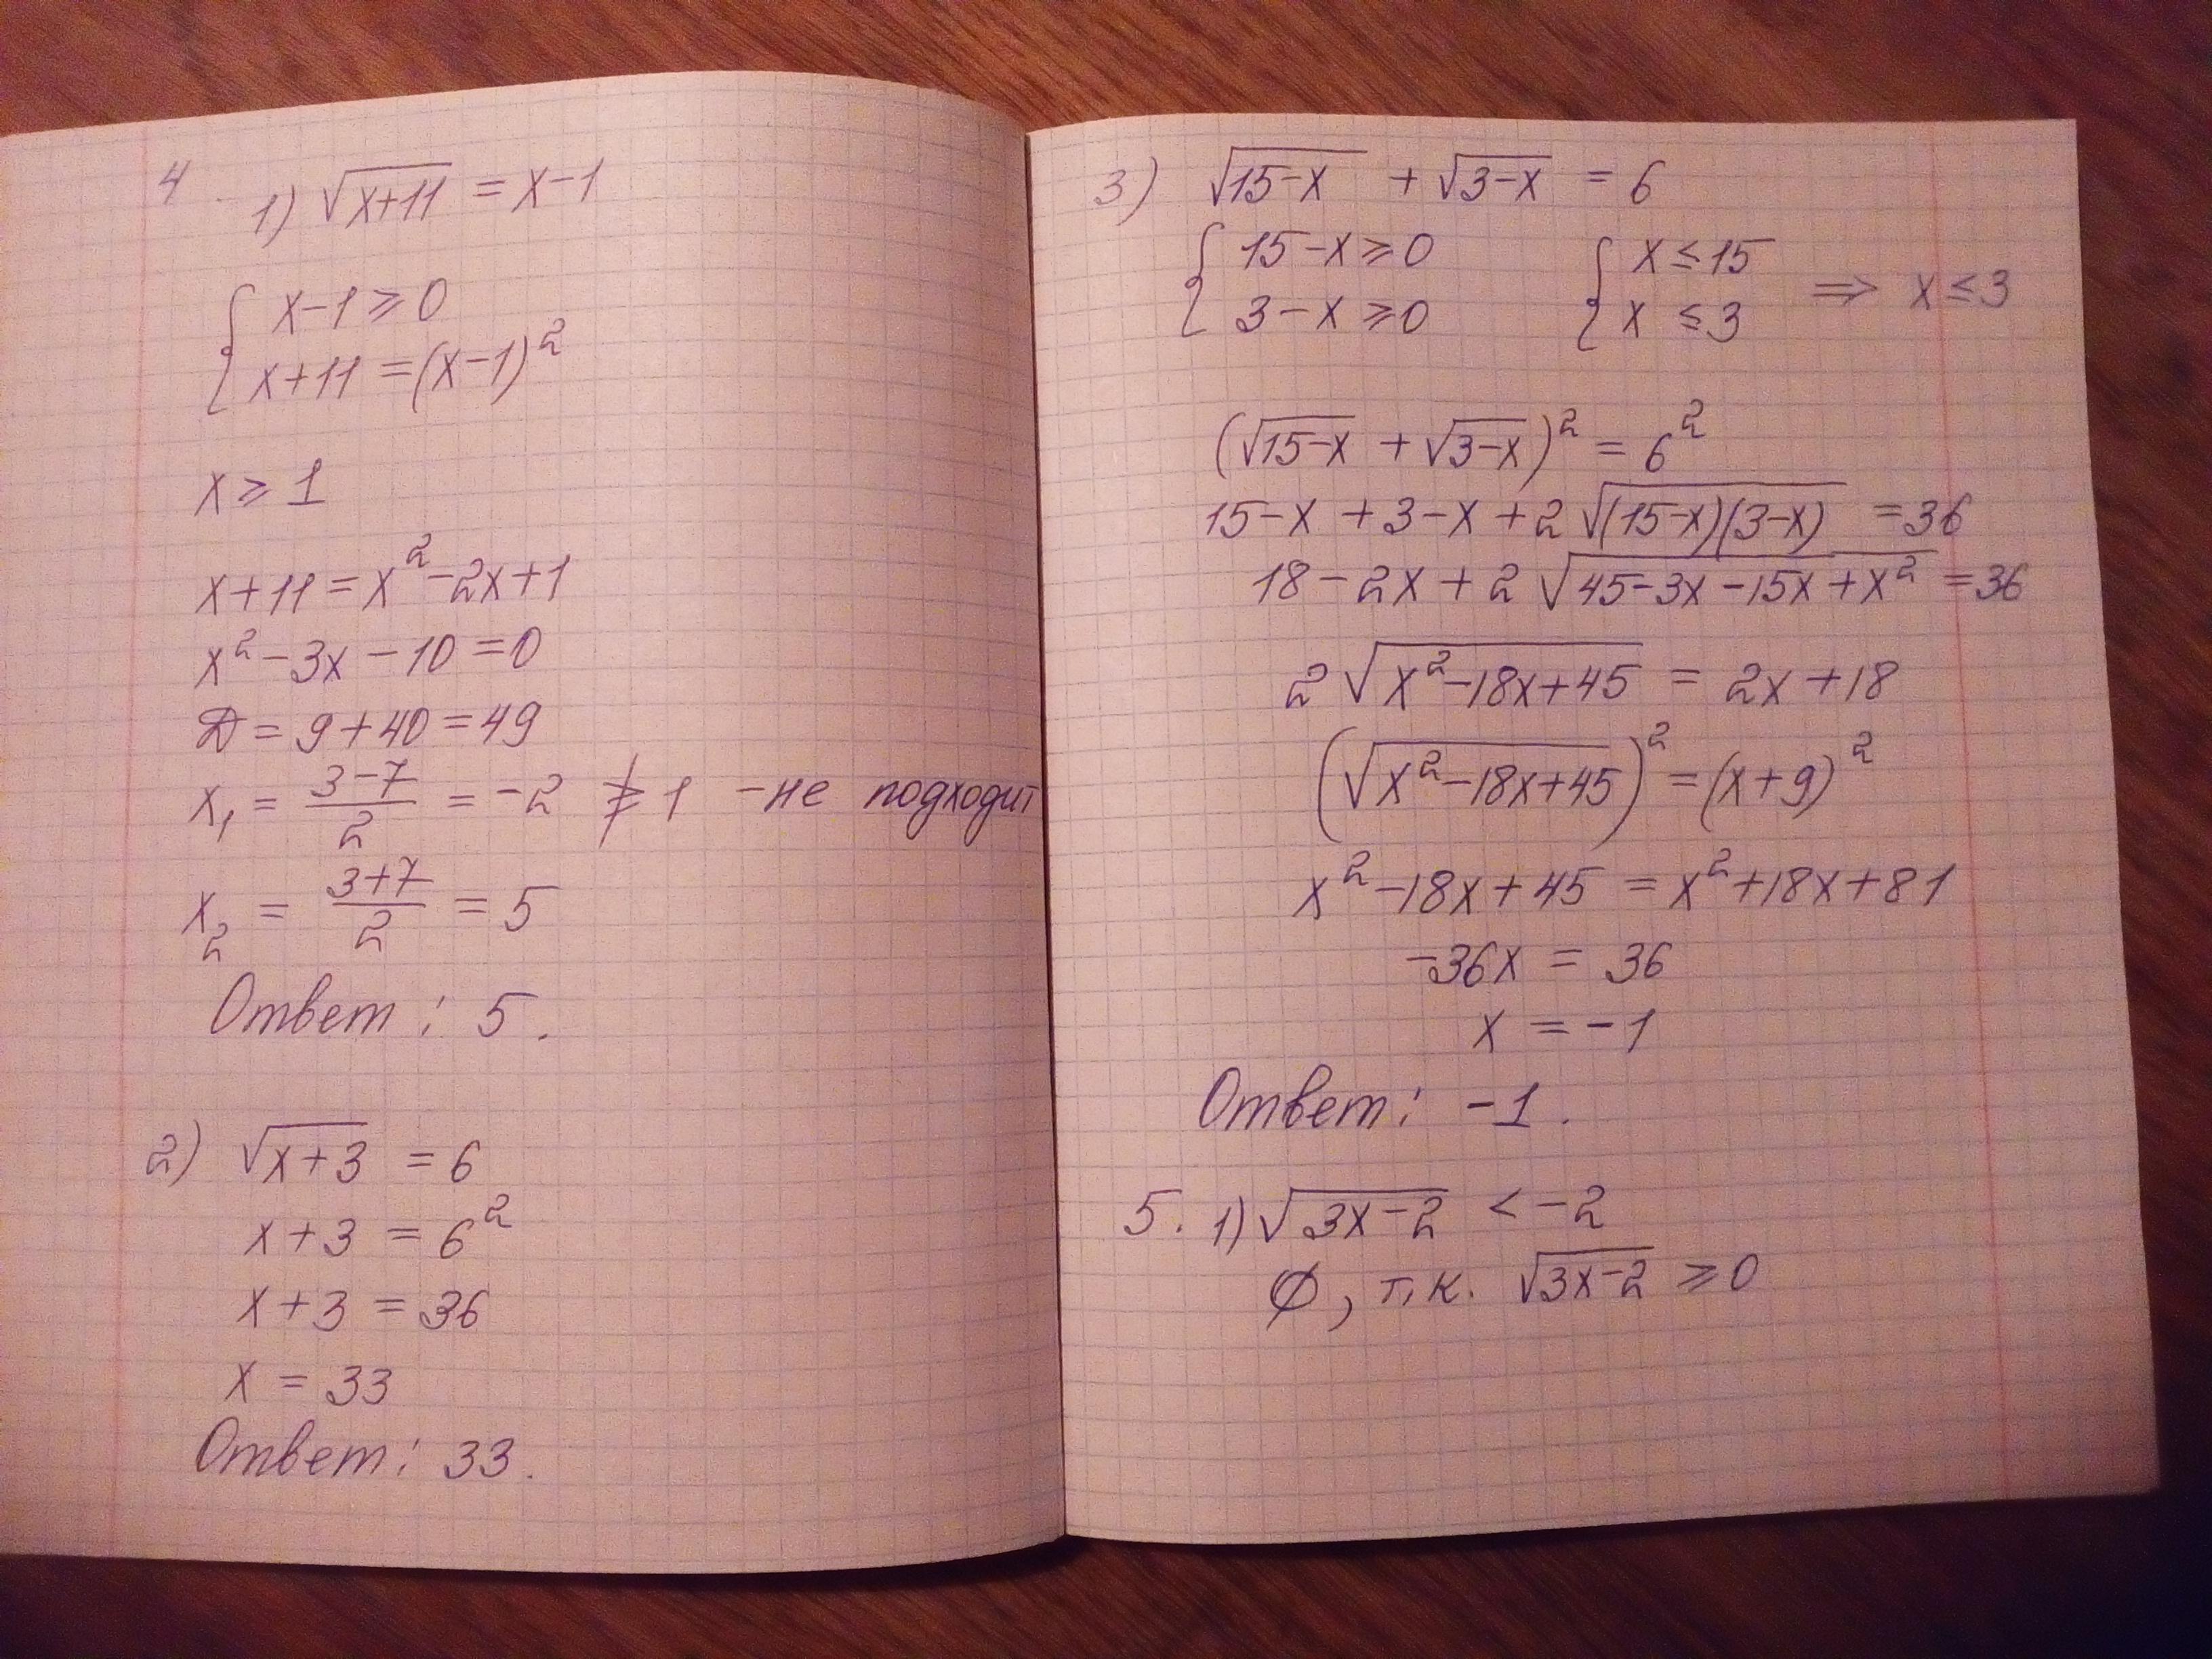 4
1) √(x+11) = x-1
{ x-1 ⩾ 0
x+11 = (x-1)²
x ⩾ 1
x+11 = x²-2x+1
x²-3x-10=0
D = 9+40=49
x₁ = (3-7)/2 = -2 ⩾̸ 1 - не подходит
x₂ = (3+7)/2 = 5
Ответ: 5.
2) √(x+3) = 6
x+3 = 6²
x+3 = 36
x = 33
Ответ: 33.
3) √(15-x) + √(3-x) = 6
{ 15-x ⩾ 0 { x ≤ 15
3-x ⩾ 0 x ≤ 3 ⇒ x ≤ 3
(√(15-x) + √(3-x))² = 6²
15-x+3-x+2√((15-x)(3-x)) = 36
18-2x+2√(45-3x-15x+x²) = 36
2√(x²-18x+45) = 2x+18
(√(x²-18x+45))² = (x+9)²
x²-18x+45 = x²+18x+81
-36x = 36
x = -1
Ответ: -1.
5. 1) √(3x-2) < -2
∅, т.к. √(3x-2) ⩾ 0